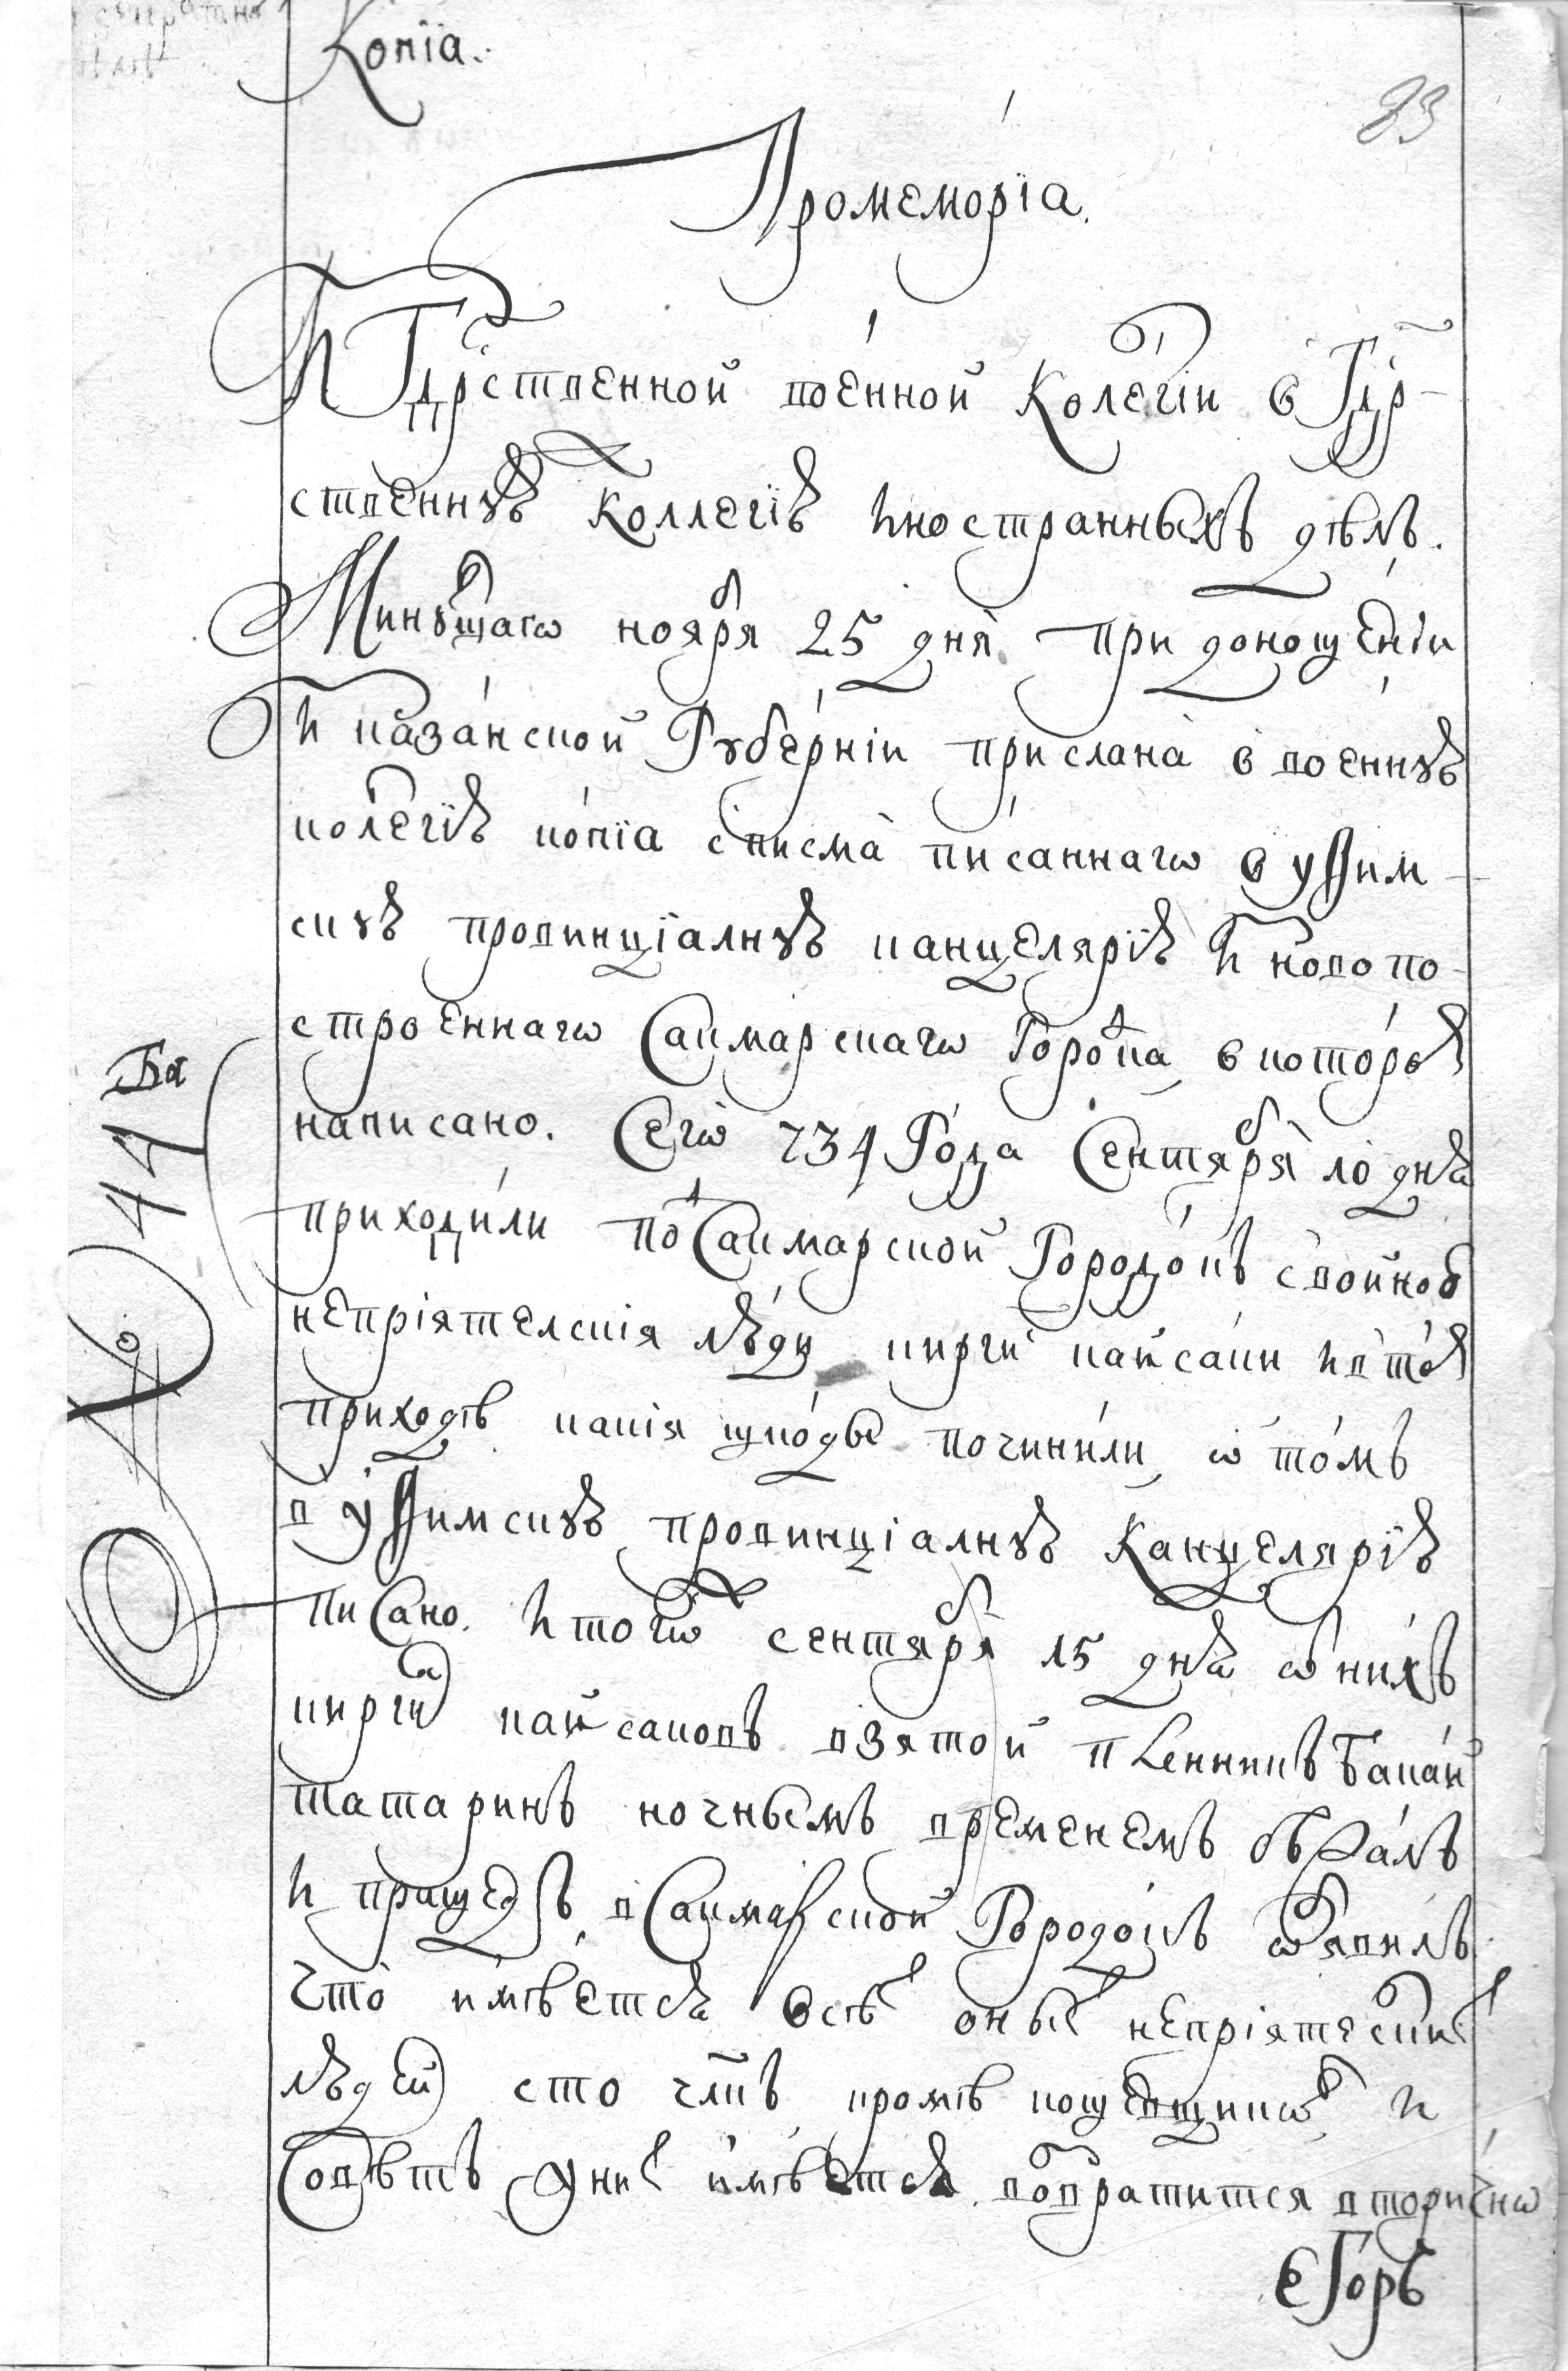 Копїа.
83
Промеморїа.
Из Гдрственной военной Колегіи в Гдр-
ственную коллегїю иностранныхъ дѣлъ.
Минувшаго ноября 25 дня при доношеніи
Из казанской Губерніи прислана в военную
колегїю копїа с писма писаннаго в уѳим-
скую провинцїалную канцелярїю из новопо-
строеннаго Сакмарскаго Городка в которомъ
написано. Сего 734 Года Сентября 10 дня
приходили под Сакмарской Городокъ с войною
непріятелскія люди киргис кайсаки и в томъ
приходѣ какія шкоды починили о томъ
в уѳимскую провинціалную Канцелярїю
писано. и того сентября 15 дня от нихъ
киргис кайсаковъ взятой пленникъ Бакай
татаринъ ночнымъ временемъ бѣжалъ
и пришедъ в Сакмарской Городокъ объявилъ
что имѣетса всѣх оных непріятелских
людей сто члвкъ кромѣ кошевщиков и
Совѣтъ у них имѣетса возвратится вторично
в Горы